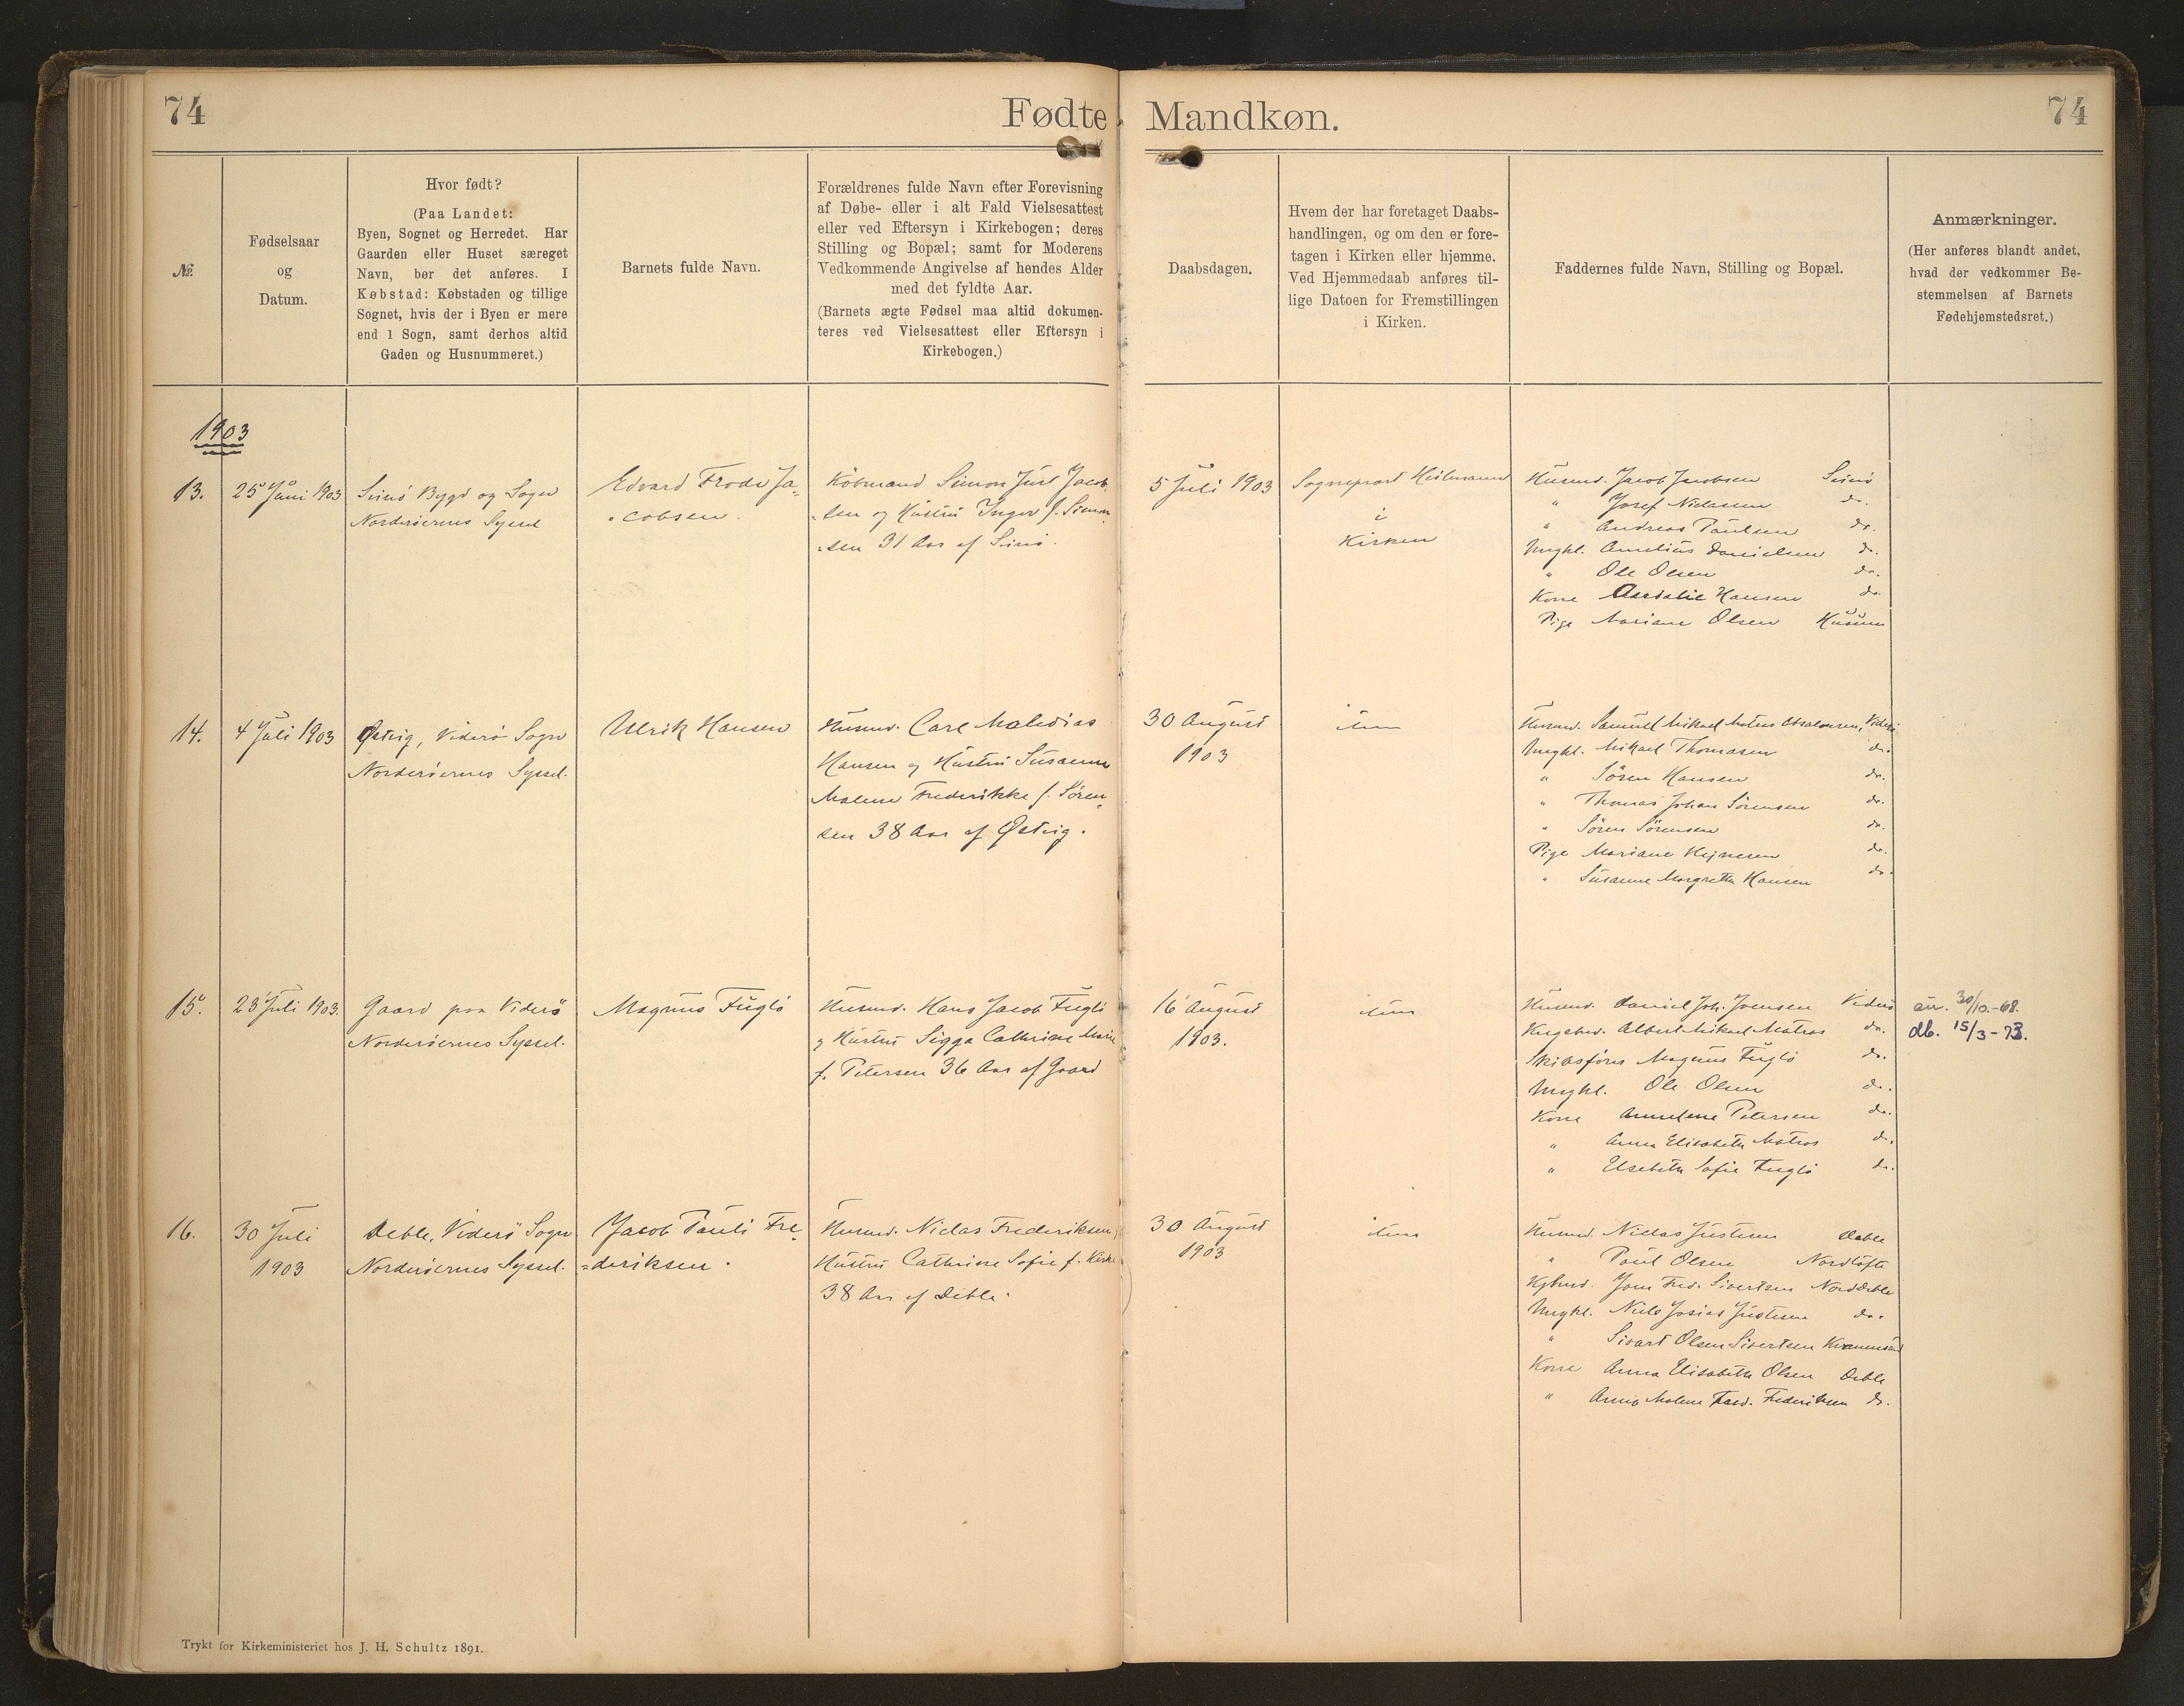 74
Fødte Mandkøn.
74
№.
Fødselsaar
og
Datum.
Hvor født?
(Paa Landet:
Byen, Sognet og Herredet. Har
Gaarden eller Huset særeget
Navn, bør det anføres. I
Købstad: Købstaden og tillige
Sognet, hvis der i Byen er mere
end 1 Sogn, samt derhos altid
Gaden og Husnummeret.)
Barnets fulde Navn.
Forældrenes fulde Navn efter Forevisning
af Døbe- eller i alt Fald Vielsesattest
eller ved Eftersyn i Kirkebogen; deres
Stilling og Bopæl; samt for Moderens
Vedkommende Angivelse af hendes Alder
med det fyldte Aar.
(Barnets ægte Fødsel maa altid dokumen-
teres ved Vielsesattest eller Eftersyn i
Kirkebogen.)
Daabsdagen.
Hvem der har foretaget Daabs-
handlingen, og om den er fore-
tagen i Kirken eller hjemme.
Ved Hjemmedaab anføres til-
lige Datoen for Fremstillingen
i Kirken.
Faddernes fulde Navn, Stilling og Bopæl.
Anmærkninger.
(Her anføres blandt andet,
hvad der vedkommer Be-
stemmelsen af Barnets
Fødehjemstedsret.)
1903
13.
25 Juni 1903
Svinø Bygd og Sogn
Norderøernes Syssel
Edvard Frode Ja-
cobsen.
Købmand Simon Just Jacob-
sen og Hustru Inger f. Simon-
sen 31 Aar af Svinø.
5 Juli 1903
Sognepræst Heilmann
i
Kirken
Husmd. Jacob Jacobsen Svinø
" Josef Niclasen do.
" Andreas Poulsen do.
Ungkl. Annelius Danielsen do.
" Ole Olsen do.
Kone Hansen do.
Pige Mariane Olsen Husum
14.
4 Juli 1903
Østvig, Viderø Sogn
Norderøernes Syssel.
Ulrik Hansen
Husmd. Carl Mathias
Hansen og Hustru Susanne
Malene Frederikke f. Søren-
sen 38 Aar af Østvig.
30 August
1903
item
Husmd. Samuel Mikael Matras Absalonsen, Viderø
Ungkl. Mikael Thomasen do.
" Søren Hansen do.
" Thomas Johan Sørensen do.
" Søren Sørensen do.
Pige Mariane Hejnesen do.
" Susanne Margretha Hansen do.
15.
23 Juli 1903.
Gaard paa Viderø
Norderøernes Syssel.
Magnus Fuglø
Husmd. Hans Jacob Fuglø
og Hustru Sigga Cathrine Marie
f. Petersen 36 Aar af Gaard
16 August
1903.
item
Husmd. Daniel Joh. Joensen Viderø
Kngsbd. Albert Mikael Matras do.
Skibsfører Magnus Fuglø do.
Ungkl. Ole Olsen do.
Kone Annelene Petersen do.
" Anna Elisabeth Matras do.
" Elsebeth Sofie Fuglø do.
an. 30/10.-68.
db. 15/3-73.
16.
30 Juli
1903
Deble, Viderø Sogn
Norderøernes Syssel.
Jacob Pauli Fre-
=deriksen.
Husmd. Niclas Frederiksen,
Hustru Cathrine Sofie f.
38 Aar af Deble.
30 August
1903
item
Husmd. Niclas Justesen Deble
" Poul Olsen Nordtofte
Kgbmd. Joen Fred. Sivertsen Norddeble
Ungkl. Niels Josias Justesen do.
" Sivert Olsen Sivertsen Kvannesund
Kone Anna Elisabeth Olsen Deble
" Anna Malene Frederiksen do.
Trykt for Kirkeministeriet hos J. H. Schultz 1891.